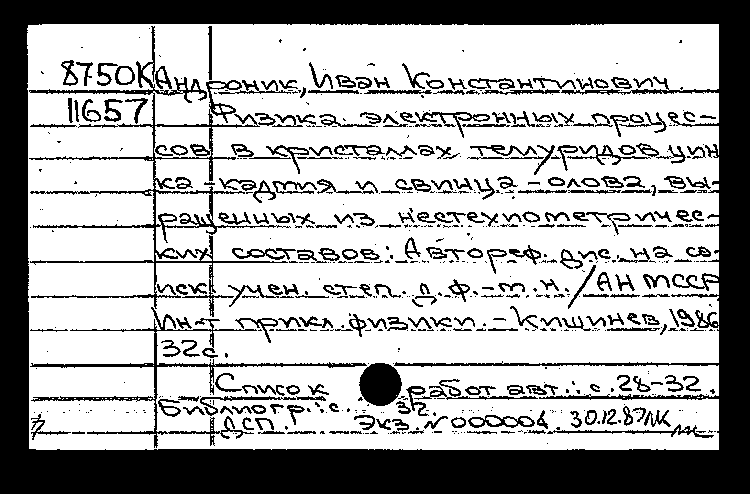 8750К Андроник, Иван Константинович.
11657 Физика электронных процес-
сов в кристаллах теллуридов цин
ка-кадмия и свинца-олова, вы-
ращенных из нестехиометричес-
ких составов: Автореф. дис. на со-
иск. учен. степ. д.ф.-м.н. / АН МССР
Ин-т прикл. физики. - Кишинев, 1986
32с.
Список работ авт.: с. 28-32.
Библиогр.: с. 32.
ДСП. Экз. N 000004. 30.12.87